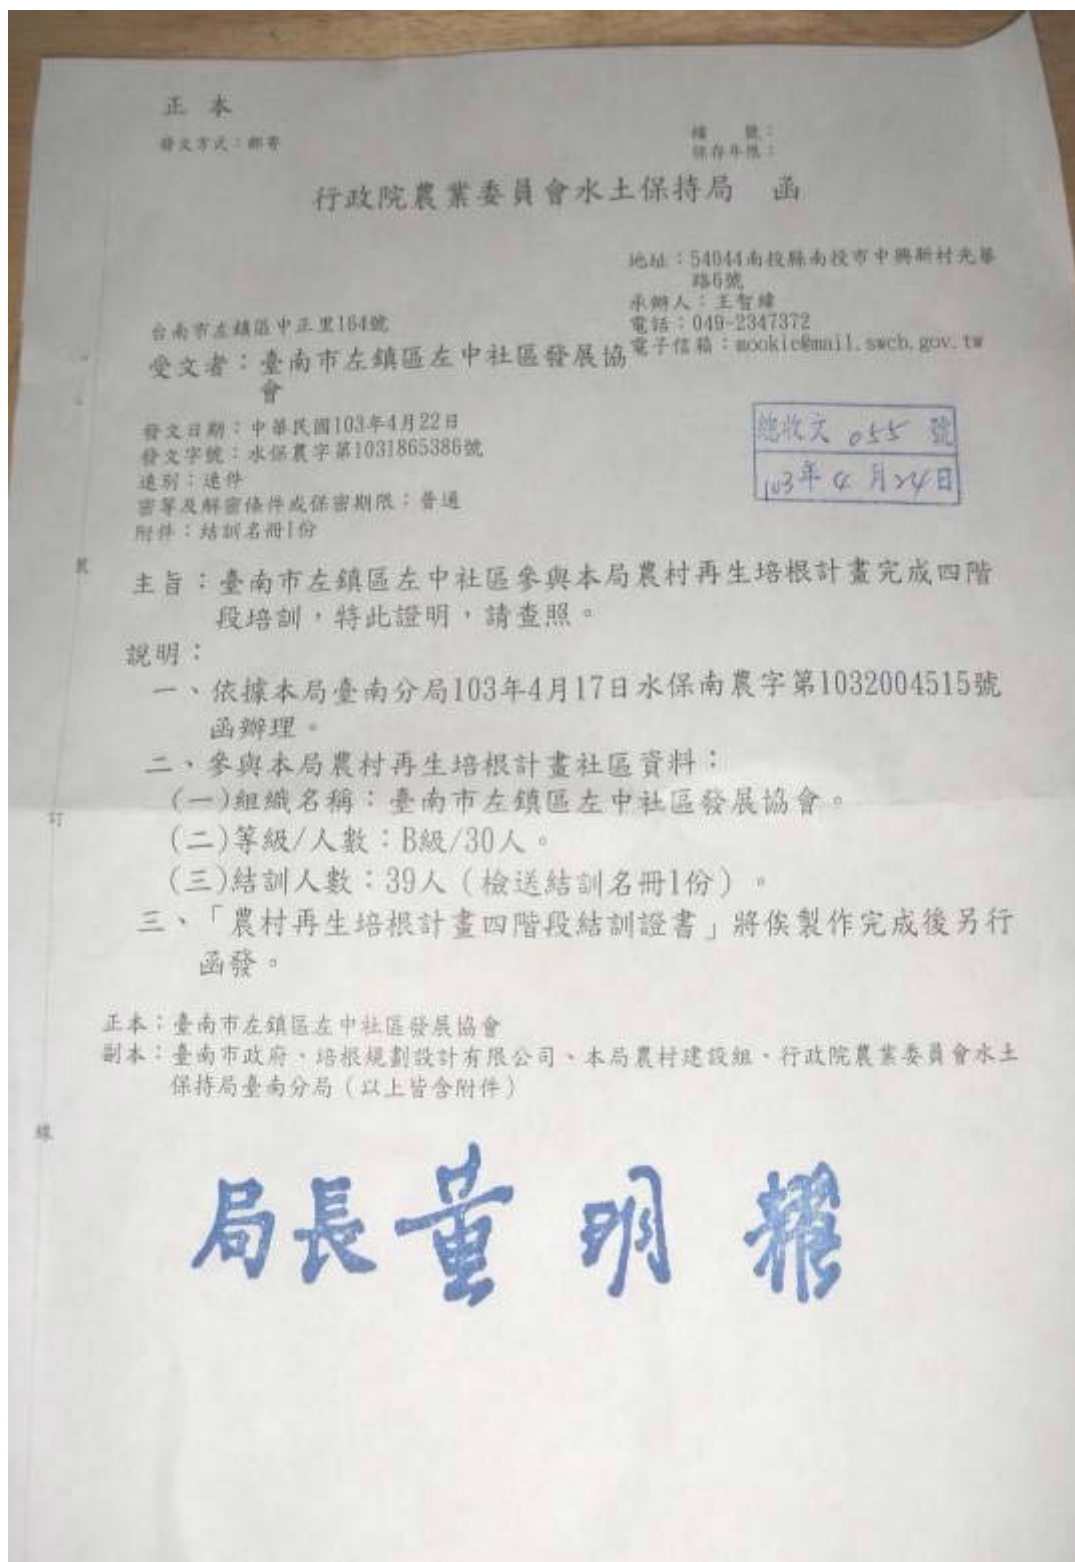 正 本
發文方式：郵寄
檔 號：
保存年限：
行政院農業委員會水土保持局 函
地址：54044南投縣南投市中興新村光華
路6號
承辦人：王智緯
電話：049-2347372
電子信箱：mookie@mail.swcb.gov.tw
台南市左鎮區中正里164號
受文者：臺南市左鎮區左中社區發展協
會
發文日期：中華民國103年4月22日
發文字號：水保農字第1031865386號
速別：速件
密等及解密條件或保密期限：普通
附件：結訓名冊1份
總收文 055 號
103年 4 月24日
主旨：臺南市左鎮區左中社區參與本局農村再生培根計畫完成四階
段培訓，特此證明，請查照。
說明：
一、依據本局臺南分局103年4月17日水保南農字第1032004515號
函辦理。
二、參與本局農村再生培根計畫社區資料：
(一)組織名稱：臺南市左鎮區左中社區發展協會。
(二)等級/人數：B級/30人。
(三)結訓人數：39人（檢送結訓名冊1份）。
三、「農村再生培根計畫四階段結訓證書」將俟製作完成後另行
函發。
正本：臺南市左鎮區左中社區發展協會
副本：臺南市政府、培根規劃設計有限公司、本局農村建設組、行政院農業委員會水土
保持局臺南分局（以上皆含附件）
訂
線
局長董明耀